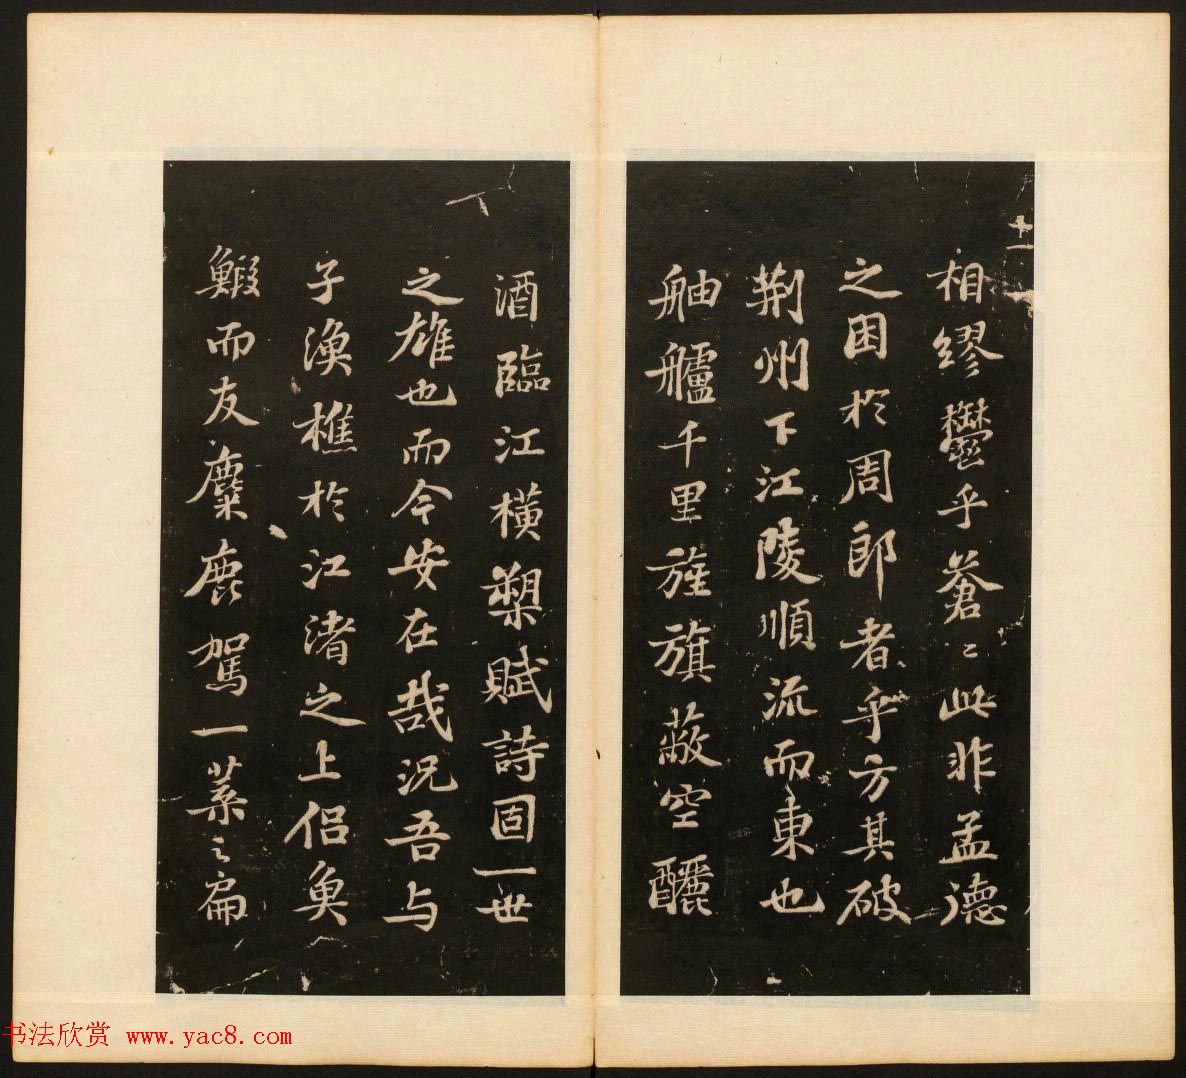 十一
相繆欝乎蒼〻此非孟德
之困於周郎者乎方其破
荆州下江陵順流而東也
舳艫千里旌旗蔽空釃
酒臨江横槊賦詩固一世
之雄也而今安在哉況吾与
子漁樵於江渚之上侣魚
鰕而友麋鹿駕一葉之扁
书法欣赏 www.yac8.com